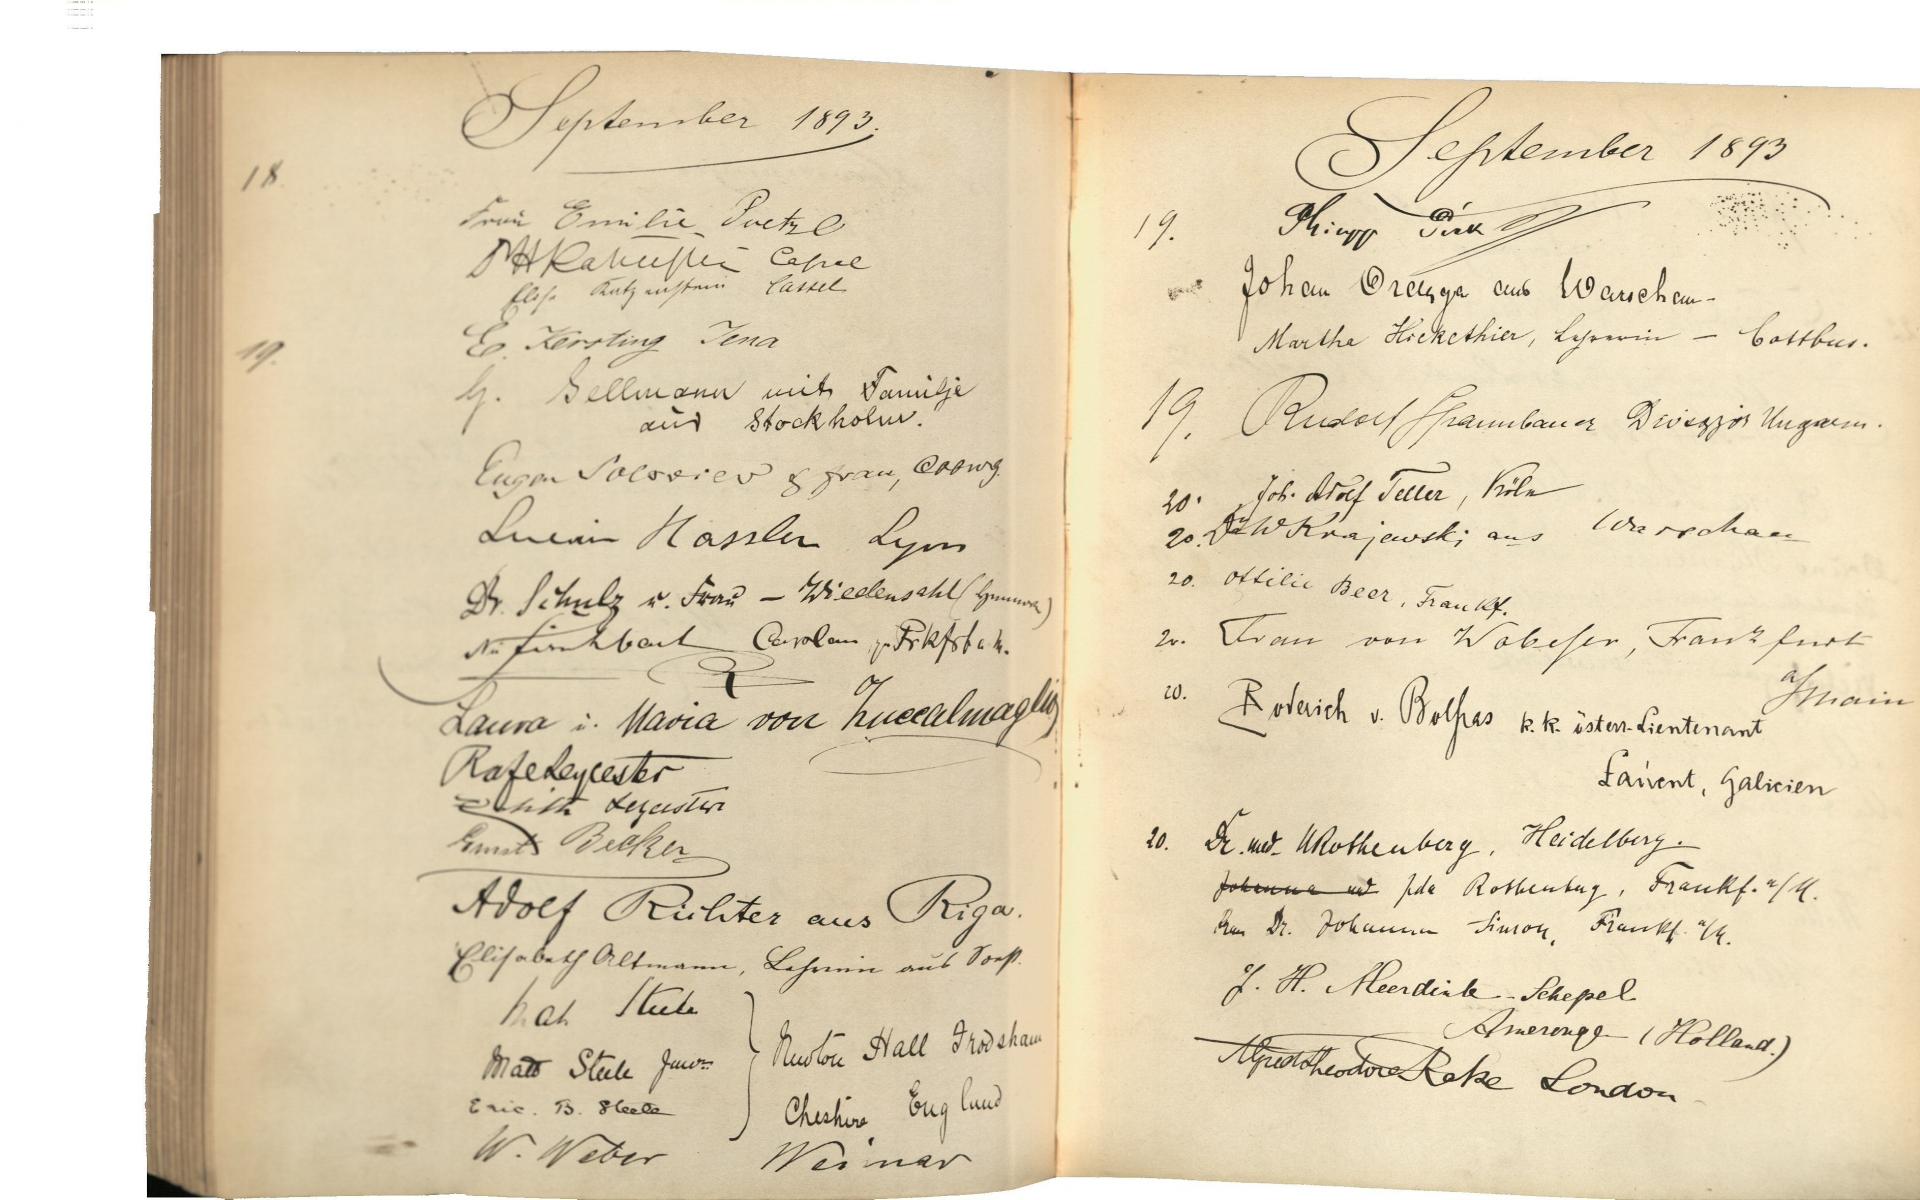 September 1893.
18.
Frau Emilie Poetzl
Dr H Katzenstein Cassel
Elise Katzenstein Cassel
19.
E. Kersting Jena
G. Sellmann mit Familje
aus Stockholm.
Eugen Soloviev & frau,
Lucian Hassler Lyon
Dr. Schulz u. Frau – Wiedensahl (Hannover)
Laura u. Maria von Zuccalmaglio
Rafe Leycester
Edith Leycester
Ernst Becker
Adolf Richter aus Riga.
Elisabeth Altmann, Lehrerin aus
Steele
Matt Steele Junr
Eric. B. Steele
Newton Hall Frodsham
Cheshire England
W. Weber Weimar
September 1893
19. Philipp
Johan aus Warschau
Martha Hickethier, Lehrerin – Cottbus.
19. Rudolf Ungarn.
20. Joh. Adolf Teller, Köln
20. Dr W Krajewski aus Warschau
20. Ottilie Beer, Frankf.
20. Frau von Wobeser, Frankfurt
a/Main
20. Roderich v. Bolfras k.k. österr. Lieutenant
Galicien
20. Dr. med. Rothenberg, Heidelberg.
Johanna und Ida Rothenberg, Frankf. a/M.
Frau Dr. Johanna Simon, Frankf. a/M.
J. H. Meerdink-Schepel
Amerongen (Holland.)
Alfred Theodore Rake London